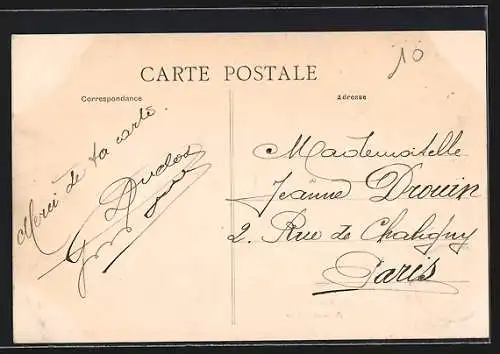 10
CARTE POSTALE
Correspondance
Adresse
Merci de ta carte.
Mademoiselle
Jeanne Drouin
2. Rue de Chaligny
Paris